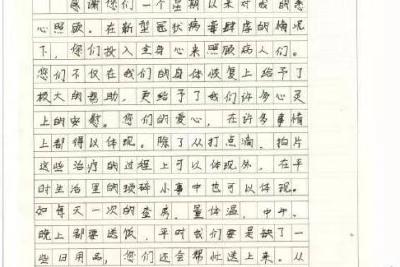 感谢您们一个星期以来对我的悉
心照顾。在新型冠状病毒肆虐的情况
下，您们投入全身心来照顾病人们。
您们不仅在我们的身体恢复上给予了
极大的帮助，更给予了我们许多心灵
上的安慰。您们的爱心，在许多事情
上都得以体现。除了从打点滴，拍片
这些治疗的过程上可以体现外，在平
时生活里的琐碎小事中也可以体现。
如每天一次的查房，量体温，中午，
晚上都要送饭，平时我们要是缺了一
些日用品，您们还会帮忙送上来。从